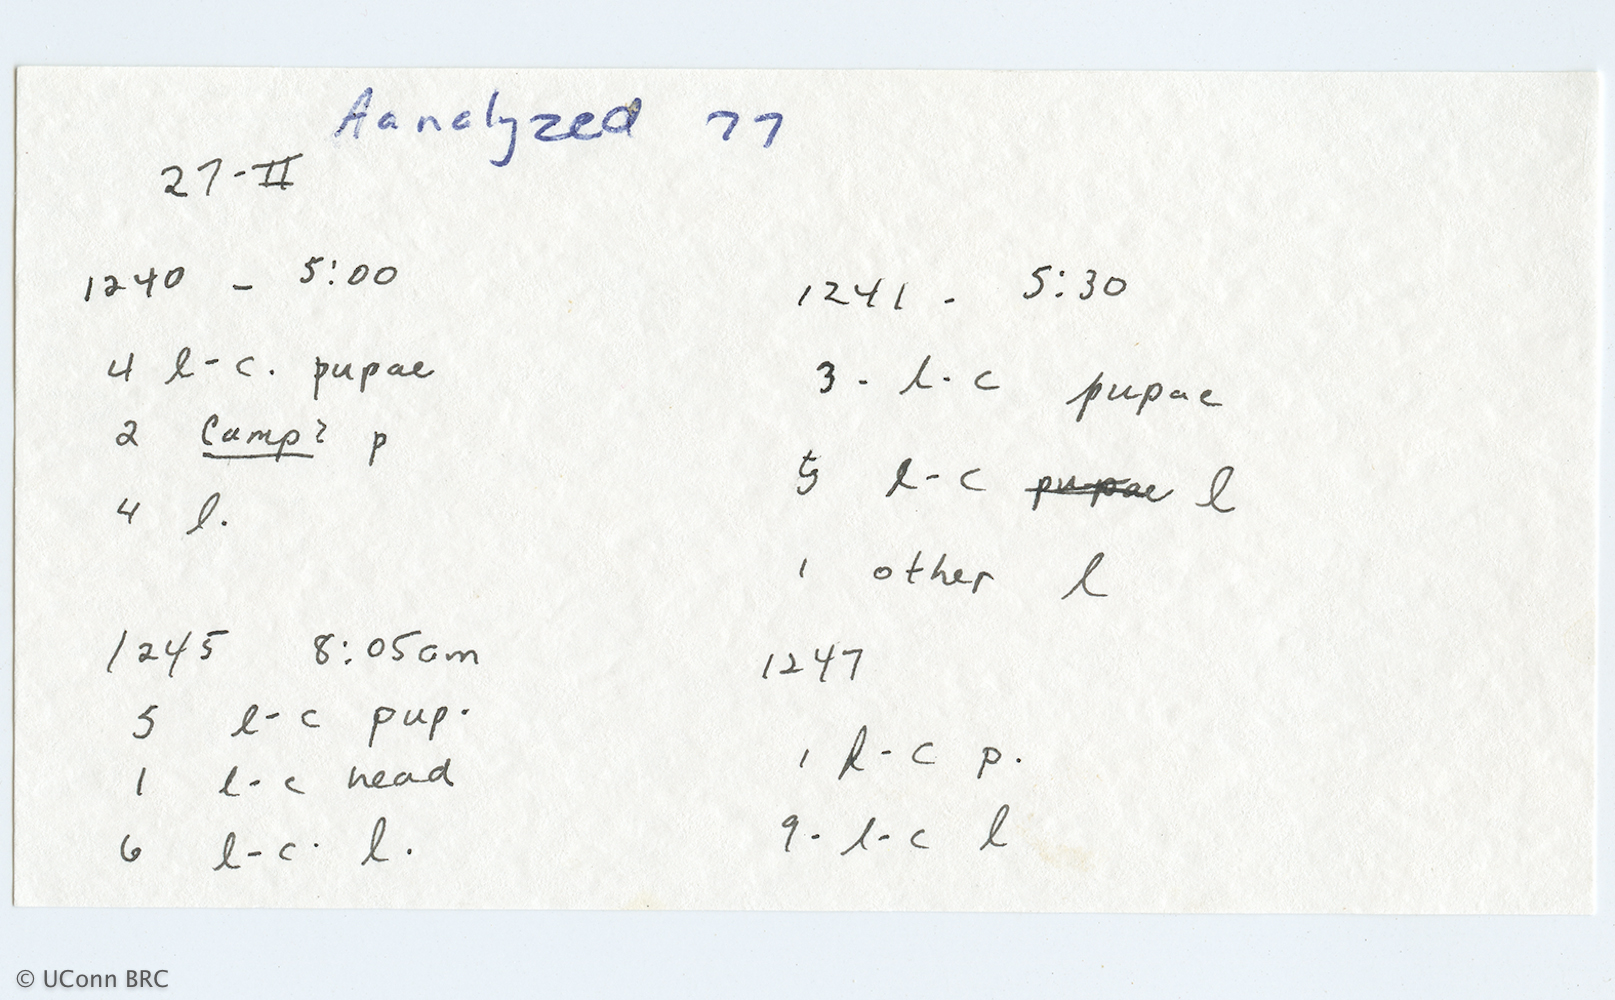 Aanalyzed 77
27-II
1240 - 5:00
4 l-c. pupae
2 Camp? p
4 l.
1241 - 5:30
3 - l-c pupae
5 l-c pupae l
1 other l
1245 8:05am
5 l-c pup.
1 l-c head
6 l-c. l.
1247
1 l-c p.
9- l-c l
© UConn BRC